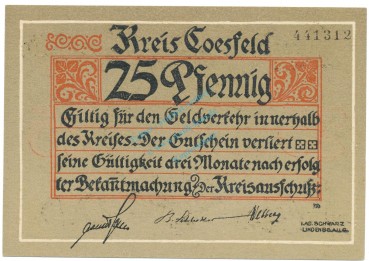 Kreis Coesfeld
441312
25 Pfennig
Gültig für den Geldverkehr innerhalb
des Kreises. Der Gutschein verliert
seine Gültigkeit drei Monate nach erfolg
ter Bekanntmachung. Der Kreisausschuß: